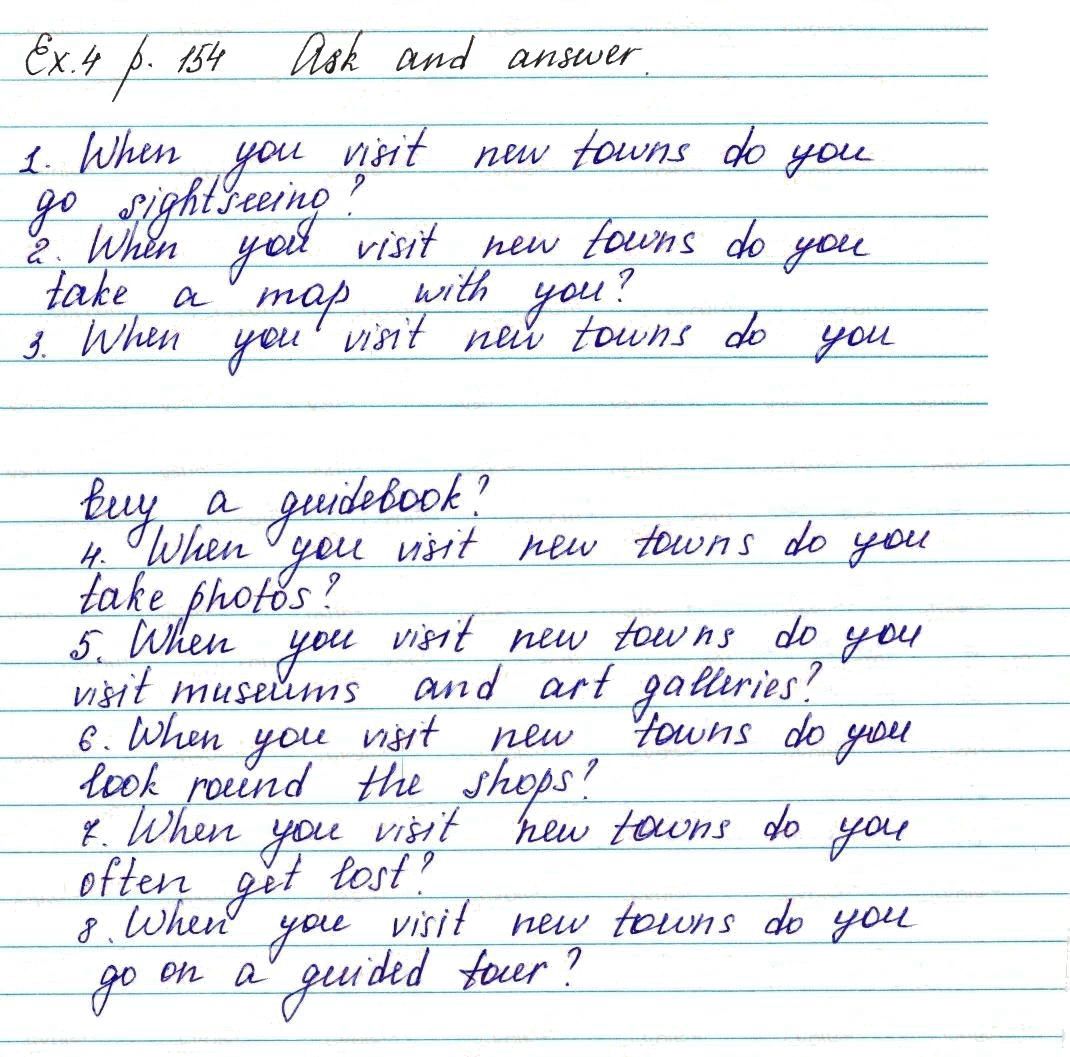 Ex.4 p. 154 Ask and answer.
1. When you visit new towns do you
go sightseeing?
2. When you visit new towns do you
take a map with you?
3. When you visit new towns do you
buy a guidebook?
4. When you visit new towns do you
take photos?
5. When you visit new towns do you
visit museums and art galleries?
6. When you visit new towns do you
look round the shops?
7. When you visit new towns do you
often get lost?
8. When you visit new towns do you
go on a guided tour?